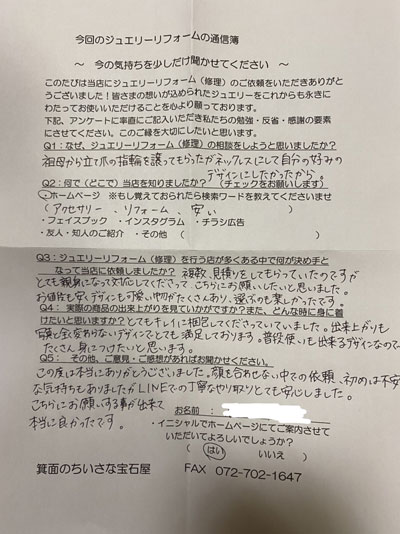 今回のジュエリーリフォームの通信簿
～ 今の気持ちを少しだけ聞かせてください ～
このたびは当店にジュエリーリフォーム（修理）のご依頼をいただきありがと
うございました！皆さまの想いが込められたジュエリーをこれからも永きに
わたってお使いいただけることを心より願っております。
下記、アンケートに率直にご記入いただき私たちの勉強・反省・感謝の要素
にさせてください。このご縁を大切にしたいと思います。
Q1：なぜ、ジュエリーリフォーム（修理）の相談をしようと思いましたか？
祖母から立て爪の指輪を譲ってもらったがネックレスにして自分の好みの
デザインにしたかったから。
Q2：何で（どこで）当店を知りましたか？ （チェックをお願いします）
・ホームページ ※もし覚えておられたら検索ワードを教えてくださいませ
（ アクセサリー 、リフォーム 、安い ）
・フェイスブック ・インスタグラム ・チラシ広告
・友人・知人のご紹介 ・その他（ ）
Q3：ジュエリーリフォーム（修理）を行う店が多くある中で何が決め手と
なって当店に依頼しましたか？ 複数、見積りをしてもらっていたのですが
とても親身になって対応してくださって、こちらにお願いしたいと思いました。
お値段も安くデザインも可愛い物がたくさんあり、選ぶのも楽しかったです。
Q4： 実際の商品の出来上がりを見ていかがですか？また、どんな時に身に着
けたいと思いますか？とてもキレイに梱包してくださっていていました。出来上がりも
写真と全く変わらないデザインでとても満足しております。普段使いも出来るデザインなので
たくさん身につけたいと思います。
Q5： その他、ご意見・ご感想があればお聞かせください。
この度は本当にありがとうございました。顔を合わせない中での依頼、初めは不安
な気持ちもありましたがLINEでの丁寧なやり取りとても安心しました。
こちらにお願いする事が出来て
本当に良かったです。
お名前：
・イニシャルでホームページにてご案内させて
いただいてよろしいでしょうか？
（ はい いいえ ）
箕面のちいさな宝石屋 FAX 072-702-1647